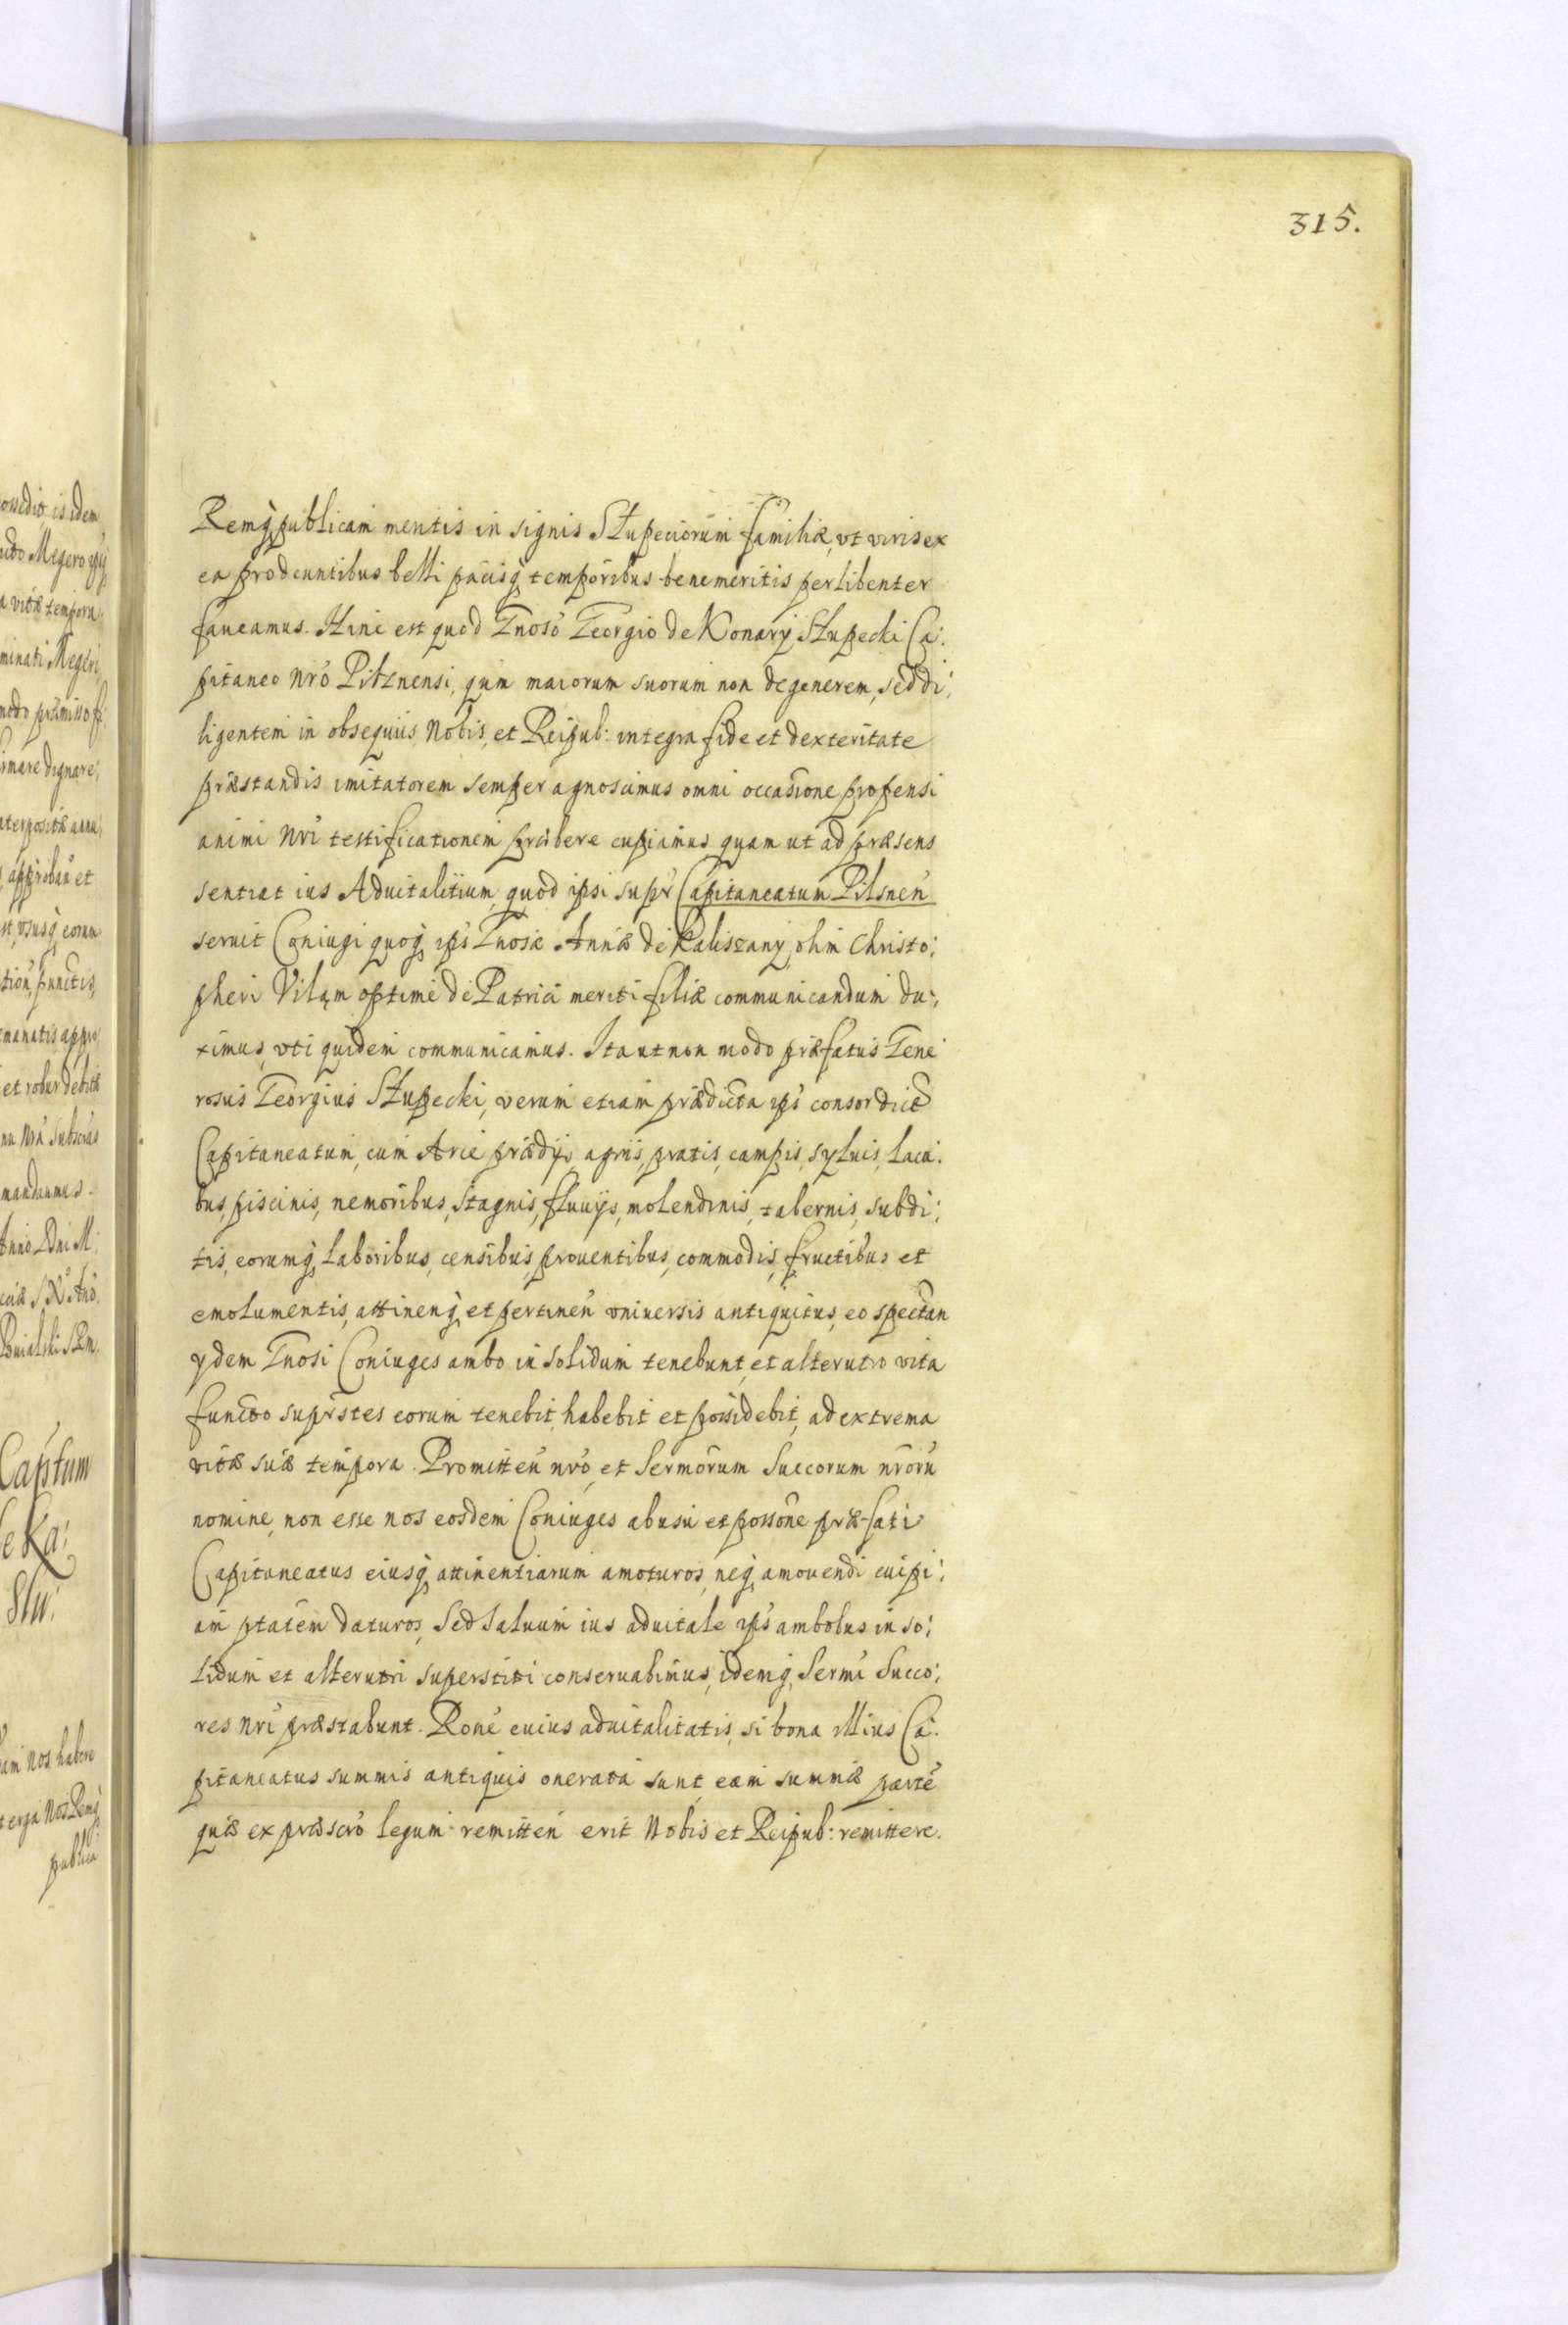 315.
Remq; publicam mentis in signis Słupeciorum familiæ, vt viris ex
ea prodeuntibus belli pacisq; temporibus benemeritis perlibenter
faueamus. Hinc est quod Gnoso Georgio de Konary Słupecki Ca:
pitaneo nro Pilznensi, qum maiorum suorum non degenerem, sed di:
ligentem in obsequiis Nobis, et Reipub: integra fide et dexteritate
præstandis imitatorem semper agnoscimus omni occasione propensi
animi nri testificationem præbere cupiamus quam ut ad præsens
sentiat ius Aduitalitium, quod ipsi supr Capitaneatum Pilsnen
seruit Coniugi quoq; ips Gnosæ Annæ de Kaliszany, olim Christo:
pheri Viląm optime de Patria meriti filiæ communicandum du:
ximus, vti quidem communicamus. Ita ut non modo præfatus Gene
rosus Georgius Słupecki, verum etiam prædicta ips consor dict
Capitaneatum, cum Arce prædijs, agris, pratis, campis, syluis, lacu:
bus, piscinis, nemoribus, stagnis, fluuijs, molendinis, tabernis, subdi:
tis, eorumq; laboribus, censibus, prouentibus, commodis, fructibus et
emolumentis, attinenq; et pertinen vniuersis antiquitus, eo spectan
ydem Gnosi Coniuges ambo in solidum tenebunt, et alterutro vita
functo suprstes eorum tenebit, habebit et possidebit, ad extrema
vitæ suæ tempora. Promitten nro, et Sermorum Succorum nroru
nomine, non esse nos eosdem Coniuges ab usu et possone præfati
Capitaneatus eiusq; attinentiarum amoturos, neq; amouendi cuipi:
am ptatem daturos, sed saluum ius aduitale ips ambobus in so:
lidum et alterutri superstiti conseruabimus, idemq; Sermi Succo:
res nri præstabunt. Rone cuius aduitalitatis, si bona illius Ca:
pitaneatus summis antiquis onerata sunt, eam summæ parte
quæ ex præscro legum remitten erit Nobis et Reipub: remittere.